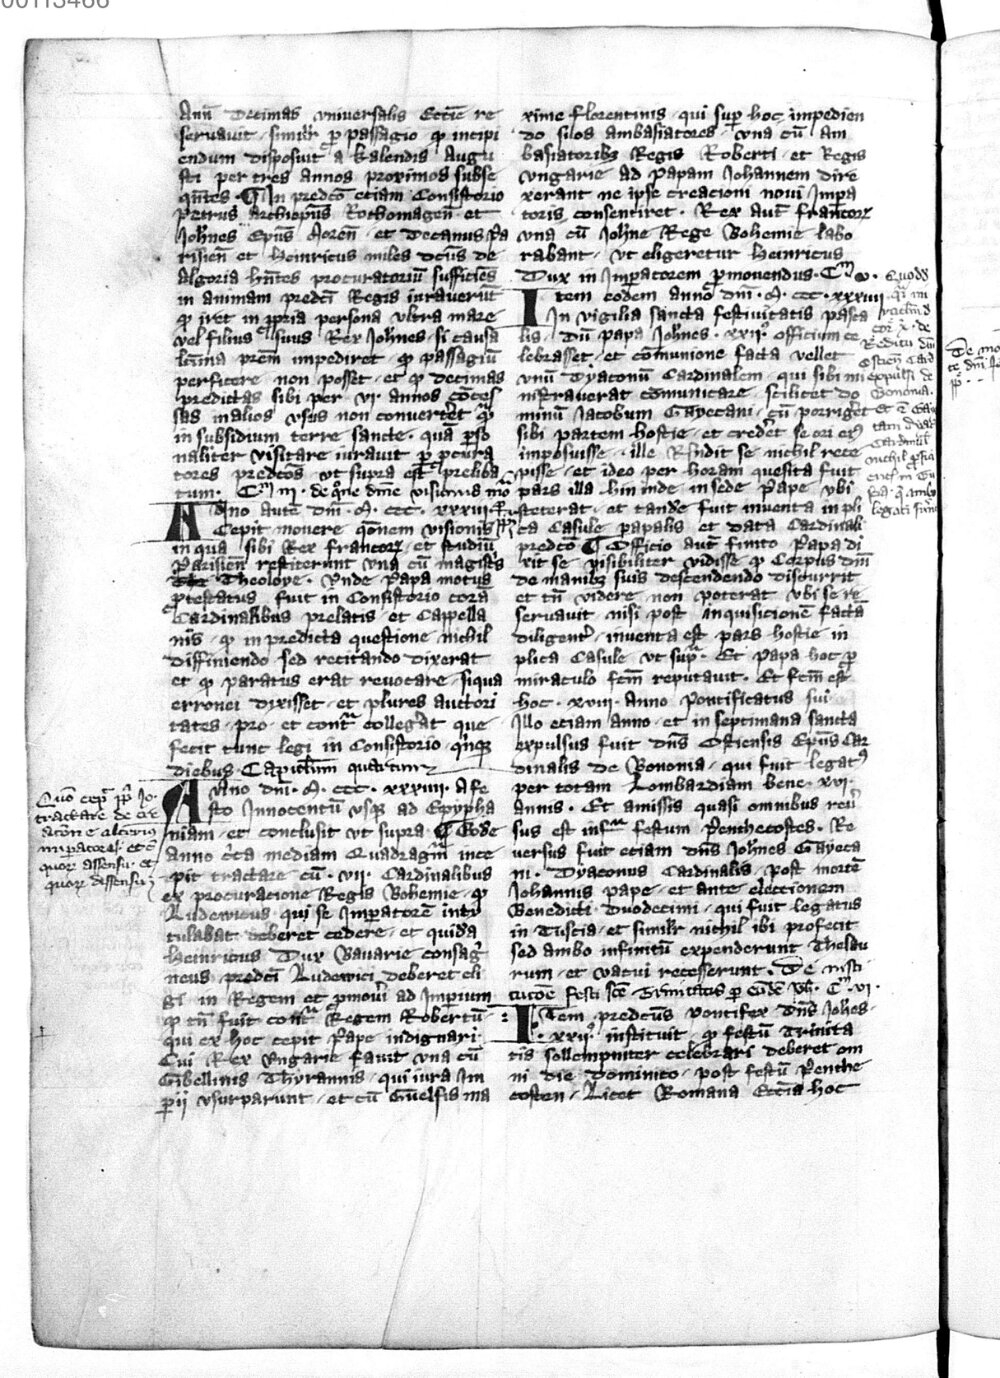 00113466
Annū Decimas vniuersalis Ecc̄ie re
seruauit · simil'r p̱ passagio qp̄ incipi
endum disposuit a kalendis Augu
sti per tres annos proximos subse
qn̄tes · ¶ In predcō etiam Consistorio
Petrus Archiep̄us Rothomagen̄ · et
Joh̄nes Ep̄us Moren̄ · et Decanus Pa
risien̄ et Heinricus miles dc̄us de
Algoria hn̄tes procuratoriū sufficiēs
in animam predcī Regis iurauerūt
qp̄ iret in p̱pria persona vltra mare
vel filius suus Rex Joh̄nes · si causa
l'ma prēm impediret · qp̄ passagiū
perficere · non posset · et qp̄ decimas
predictas sibi per · vi · annos cōces
sas in alios vsus non conuerteret q̄
in subsidium terre sancte · quā p̱so
naliter visitare iurauit p̱ p̱cura
tores predcōs vt supra est preliba
tum · Cm iij · de qōne dīne visionis mō
Anno autē dn̄i · M · ccc · xxxiii
Cepit mouere qōnem visionis
in qua sibi Rex francoꝝ · et studiū
Parisien̄ restiterunt vna cū magistris
Theoloye · Vnde Papa motus
p̱testatus fuit in Consistorio corā
Cardinalibus prelatis · et Cappella
nis · qp̄ in predicta questione nichil
diffiniendo sed recitando dixerat
et qp̄ paratus erat reuocare · siqua
erronei dixisset · et plures auctori
tates · pro · et contra collegerat que
fecit tunc legi in Consistorio qīnqꝫ
diebus · Capitulum quartum
Anno dn̄i · M · ccc · xxxiiii · A fe
sto Innocentū vsqꝫ ad Epypha
niam · et conclusit vt supra ¶ Eode
Anno c̄ca mediam Quadragm̄ ince
pit tractare cū · vii · Cardinalibus
ex procuratione Regis Bohemie · qp̄
Ludewicus · qui se Imp̱atorē inty
tulabat deberet cedere · et quidā
Heinricus Dux Bauarie consaḡ
neus predcī Ludewici deberet eli
gi in Regem et p̱moueri ad Imperium
qp̄ tn̄ fuit contra Regem Robertū
qui ex hoc cepit Pape indignari
Cui Rex Vngarie fauit vna cū
Gibellinis Thyrannis · qui iura Im
p̱ij vsurparunt · et cū Guelfis ma
Quō cepit pp̄ Jo
tractare de cre
acōne alterius
imperatores · et
quoꝝ assensu · et
quoꝝ dissensu
xime florentinis · qui sup̱ hoc impedien
do silos ambasiatores · vna cū am
basiatoribꝫ Regis Roberti · et Regis
vngarie ad Papam Johannem dire
xerant ne ipse creacioni noui Impa
toris consentiret · Rex aut̄ francoꝝ
vna cū Joh̄ne Rege Bohemie labo
rabant · vt eligeretur Heinricus
Dux in Imp̱atorem p̱mouendus · Cm v ·
Item eodem anno dn̄i · M · ccc · xxxiiii
In vigilia sancta festiuitatis pasca
lis · Dū papa Joh̄nes · xxii · officium ce
lebrasset · et cōmunione facta vellet
vnū Dyaconū Cardinalem · qui sibi mi
nistrauerat comunicare · scilicet do
minū Jacobum Gayecani · cū porrigeret
sibi partem hostie · et credēt se ori eius
imposuisse · ille Rn̄dit se nichil rece
pisse · et ideo per horam quesita fuit
pars illa hin inde · in sede Pape vbi
steterat · et tande fuit inuenta in pli
ca Casule papalis et data Cardinali
predcō ¶ Officio aut̄ finito Papa di
xit se visibiliter vidisse qp̄ Corpus dn̄i
de manibꝫ suis descendendo discurrit
et tn̄ videre non poterat vbi se re
seruauit · nisi post inquisicionē factā
diligent̄ · inuenta est pars hostie in
plica Casule · vt sup̱ · Et Papa hoc p̱
miraculo fcm̄ reputauit · Et fcm̄ est
hoc · xviii · anno Pontificatus sui ·
Illo etiam anno · et in septimana sancta
expulsus fuit dn̄s Ostiensis Ep̄us Car
dinalis de Bononia · qui fuit legat9
per totam Lombardiam bene · xvi ·
annis · Et amissis quasi omnibus reu̇
sus est infra festum Penthecostes · Re
uersus fuit etiam dn̄s Joh̄nes Gayeca
ni · Dyaconus Cardinalis · post mortē
Johannis pape · et ante electionem
Benedicti Duodecimi · qui fuit legatus
in Tuscia · et simil'r nichil ibi profecit
sed ambo infinitū expenderunt Thesau
rum · et vacui recesserunt · De insti
tucōe festi scē Trinitatis p̱ eūdē · Cm · vi ·
Item predcūs Pontifex Dn̄s Joh̄es ·
xxii · instituit · qp̄ festū Trinita
tis sollempniter celebrari deberet om
ni die dominico · post festū Penthe
costen · Licet Romana Ecc̄ia hoc
de
Reditu dn̄i
Ostien̄ Card
expulsi de
Bononia ·
Cardinal
nichil
legati
De mo
te dn̄i